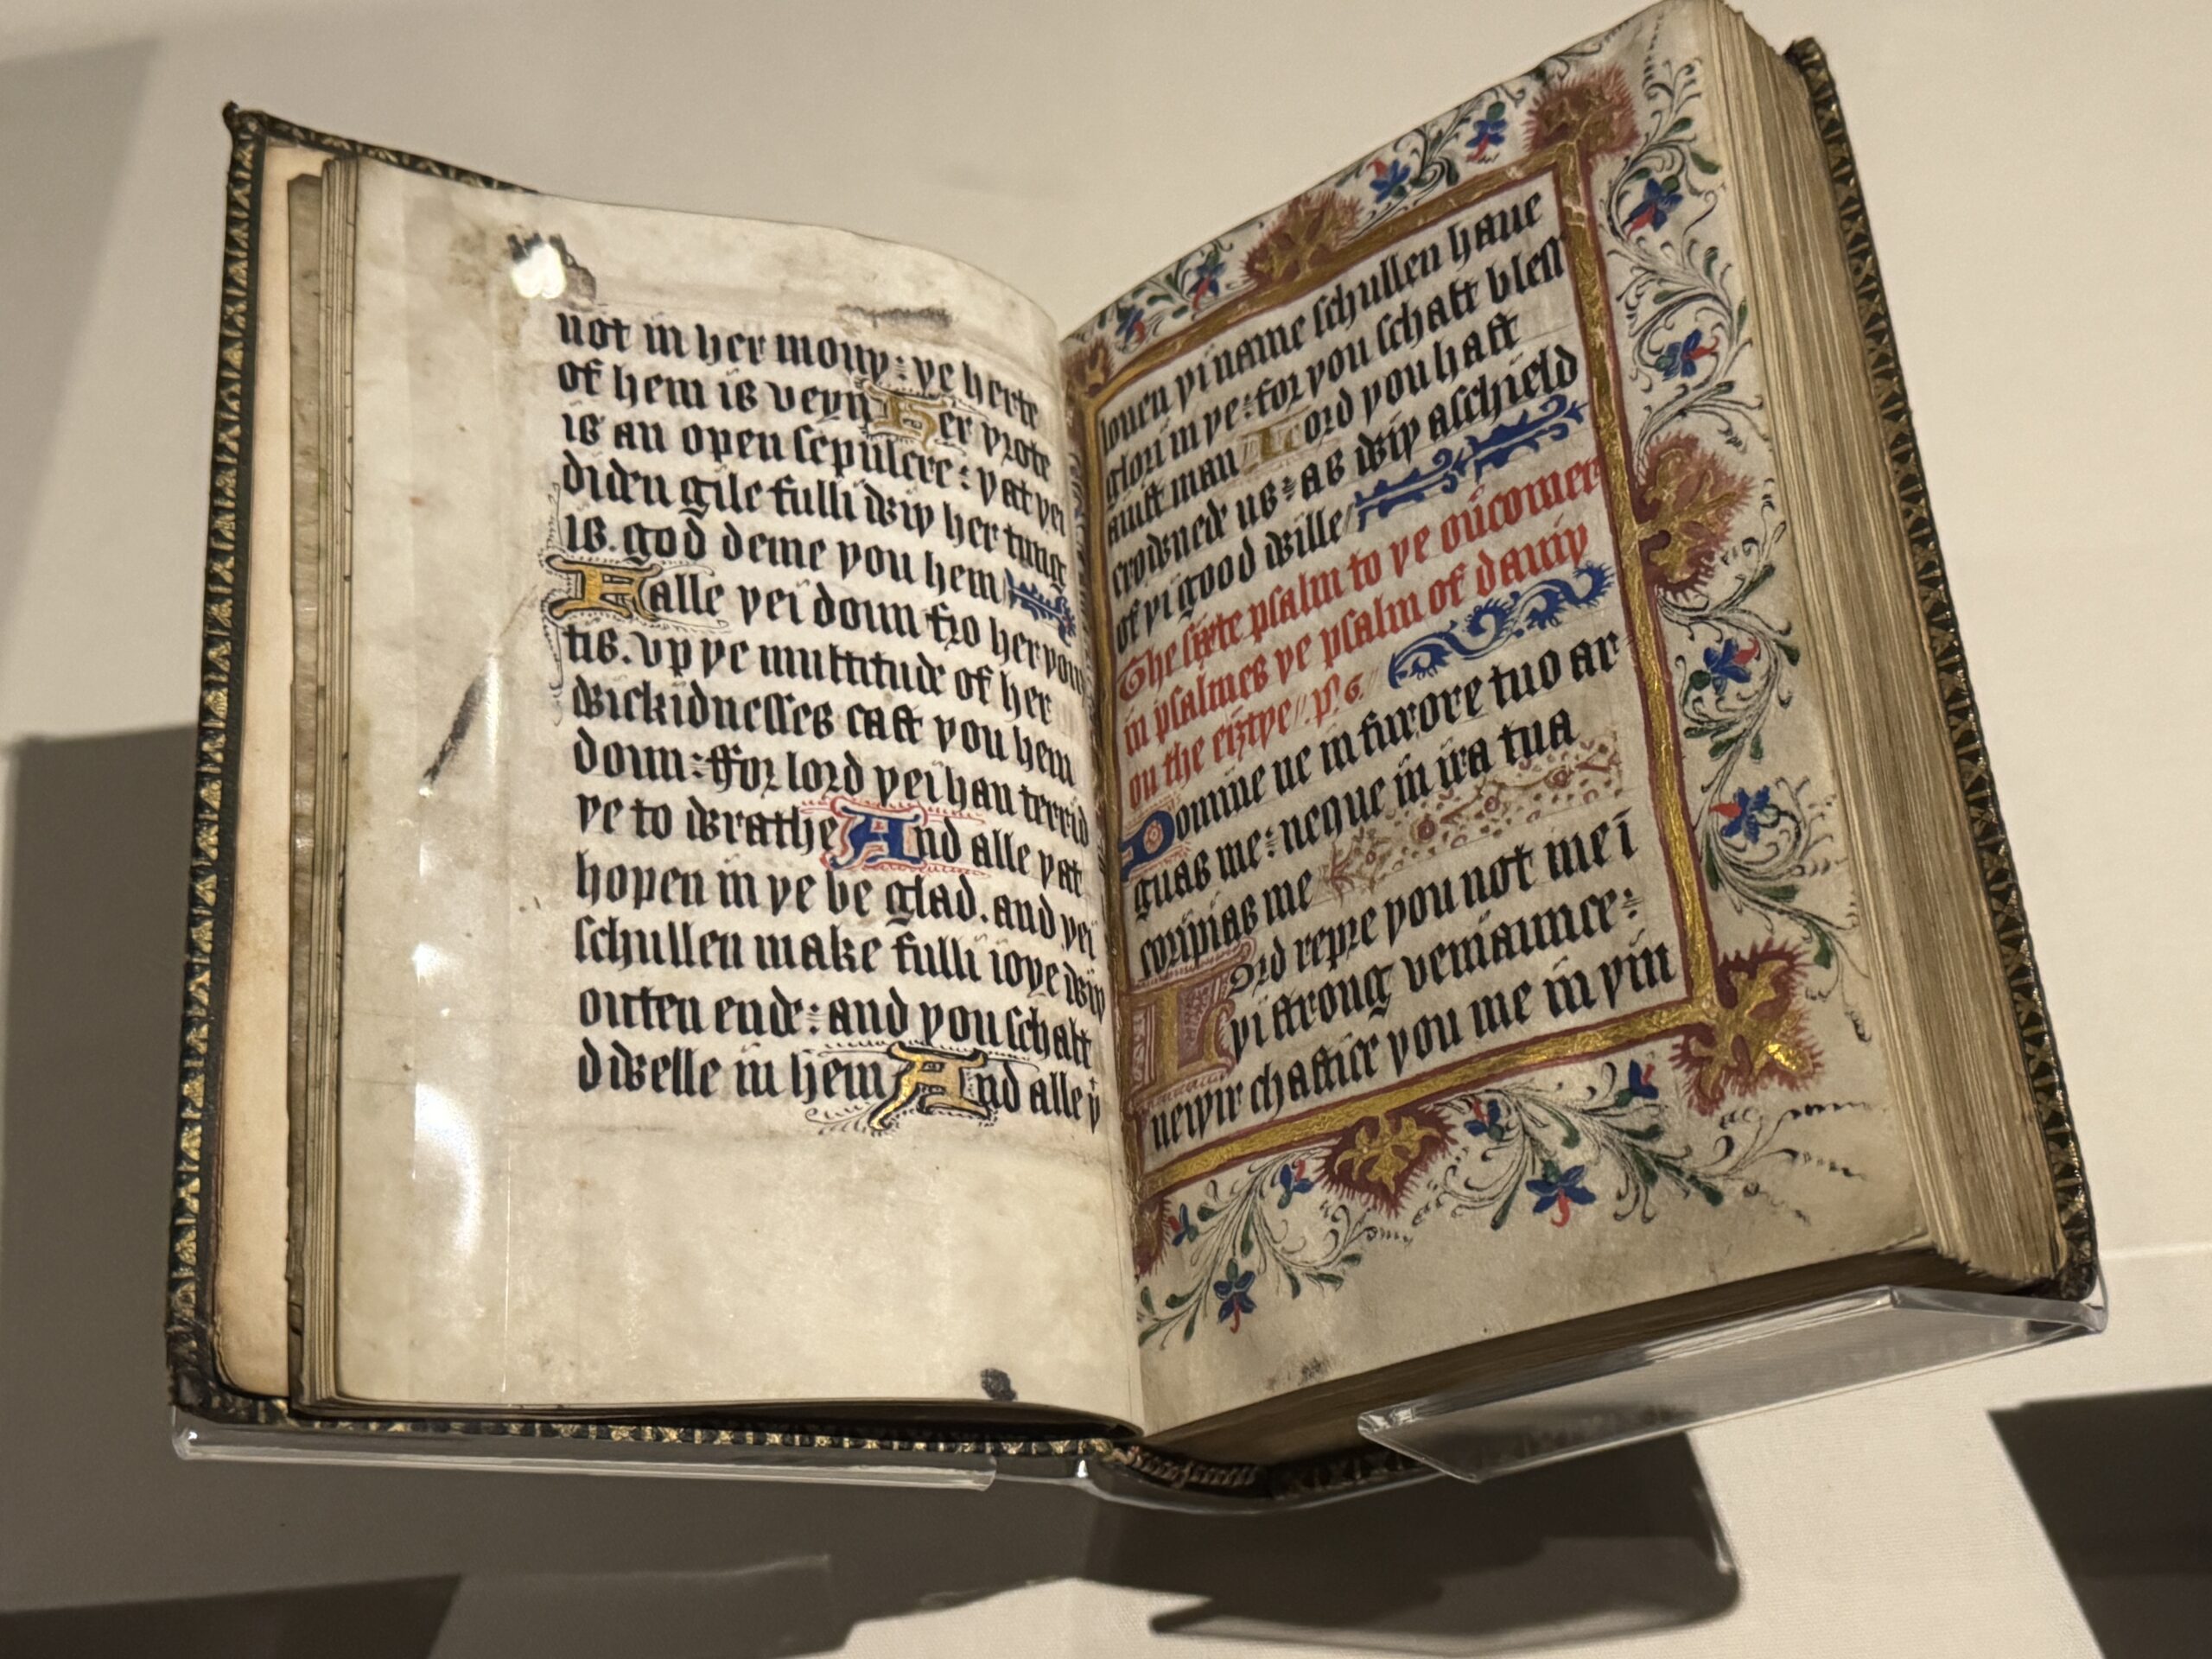 not in her mouy : ye herte
of hem is veyn Her yrote
is an open sepulcre : yat yei
diden gile fulli wiy her tung
is . god deme you hem
Falle yei doun fro her you
tis . vp ye multitude of her
wickidnesses cast you hem
doun : ffor lord yei han terrid
ye to wrathe And alle yat
hopen in ye be glad . and yei
schullen make fulli ioye wiy
outen ende : and you schalt
dwelle in hem And alle yͭ
louen yi name schullen haue
glori in ye : for you schalt bless
a iust man Lord you hast
crowned us : as wiy a schield
of yi good wille
The sixte psalm to ye ouicomer
in psalmes ye psalm of dauiy
on the eiȝtye // . p̄ . 6 . //
Domine ne in furore tuo ar
guas me : neque in ira tua
coripias me
Lord repre you not me ī
yi strong veniaunce :
neiyir chastice you me in yin